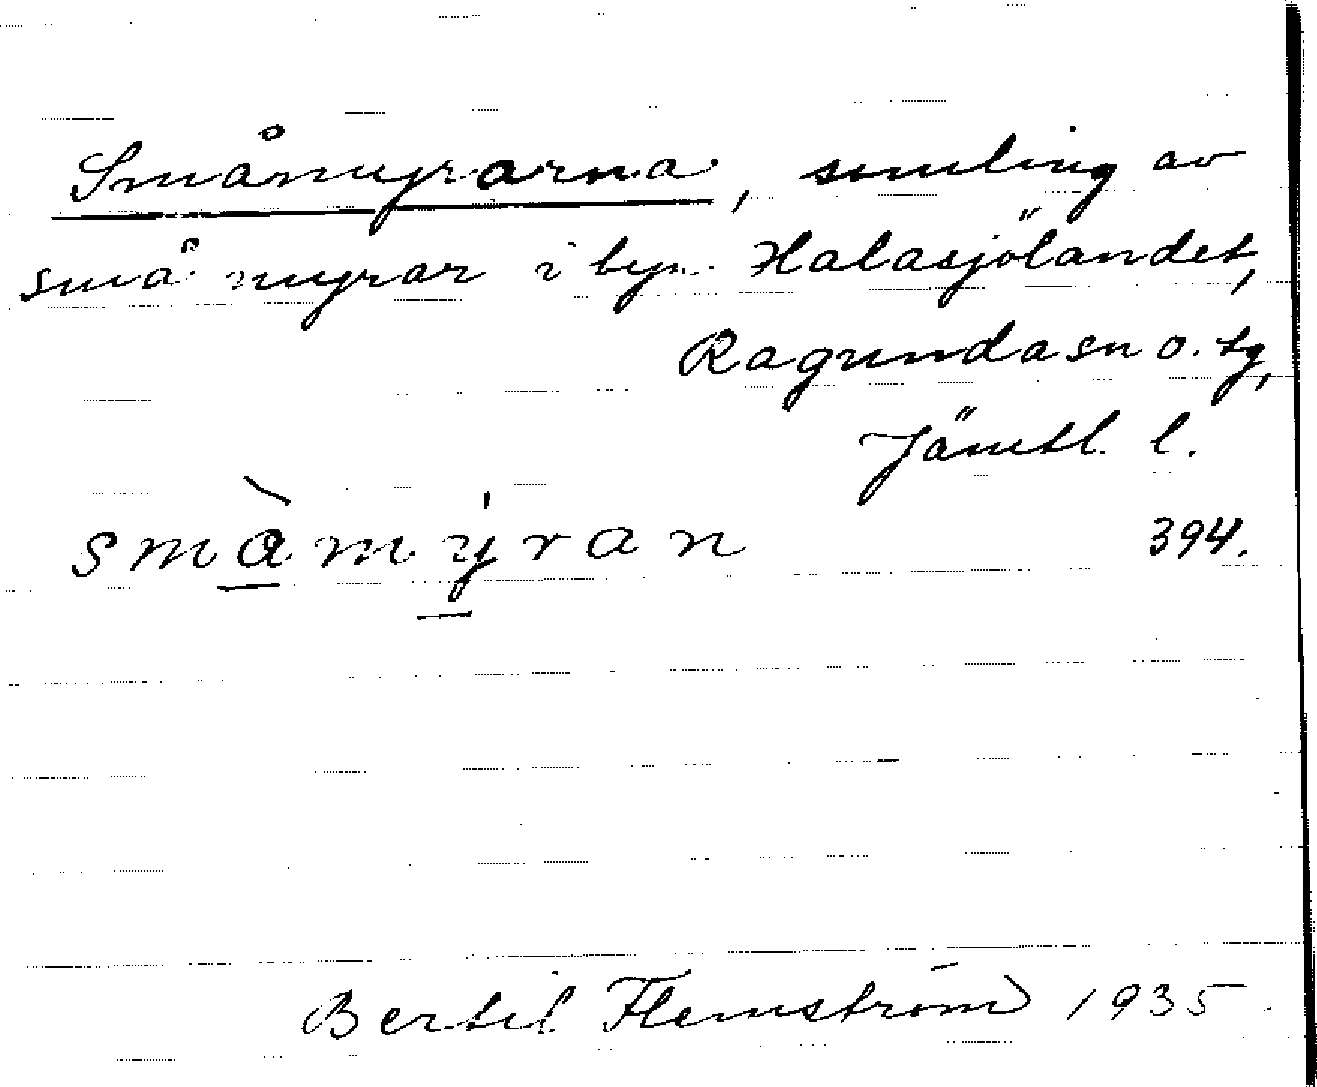 Småmyrarna, samling av
små myrar i byn Halasjölandet,
Ragunda sn o. tg,
Jämtl. l.
småmyran 394.
Bertil Flemström 1935